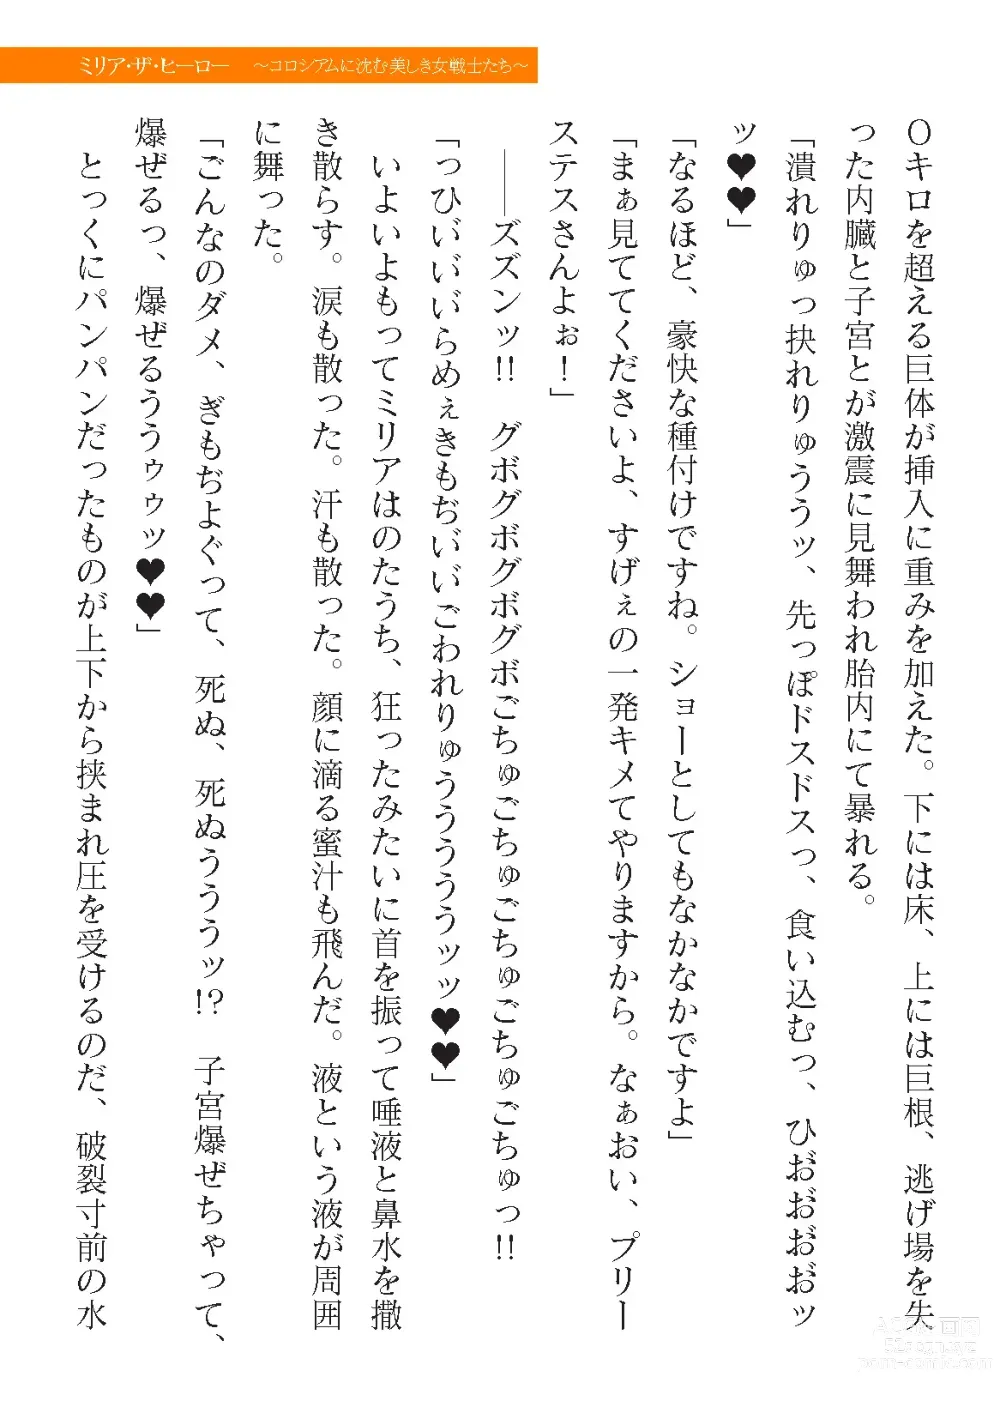 ミリア・ザ・ヒーロー　～コロシアムに沈む美しき女戦士たち～
０キロを超える巨体が挿入に重みを加えた。下には床、上には巨根、逃げ場を失
った内臓と子宮とが激震に見舞われ胎内にて暴れる。
「潰れりゅっ抉れりゅううッ、先っぽドスドスっ、食い込むっ、ひお゛お゛お゛お゛ッ
ッ♥♥」
「なるほど、豪快な種付けですね。ショーとしてもなかなかですよ」
「まぁ見ててくださいよ、すげぇの一発キメてやりますから。なぁおい、プリー
ステスさんよぉ！」
――ズズンッ!!　グボグボグボグボごちゅごちゅごちゅごちゅごちゅっ!!
「っひい゛い゛い゛らめぇきもぢい゛い゛ごわれりゅうううううッッ♥♥」
いよいよもってミリアはのたうち、狂ったみたいに首を振って唾液と鼻水を撒
き散らす。涙も散った。汗も散った。顔に滴る蜜汁も飛んだ。液という液が周囲
に舞った。
「ごんなのダメ、ぎもぢよぐって、死ぬ、死ぬうううッ!?　子宮爆ぜちゃって、
爆ぜるっ、爆ぜるううゥゥッ♥♥」
とっくにパンパンだったものが上下から挟まれ圧を受けるのだ、破裂寸前の水